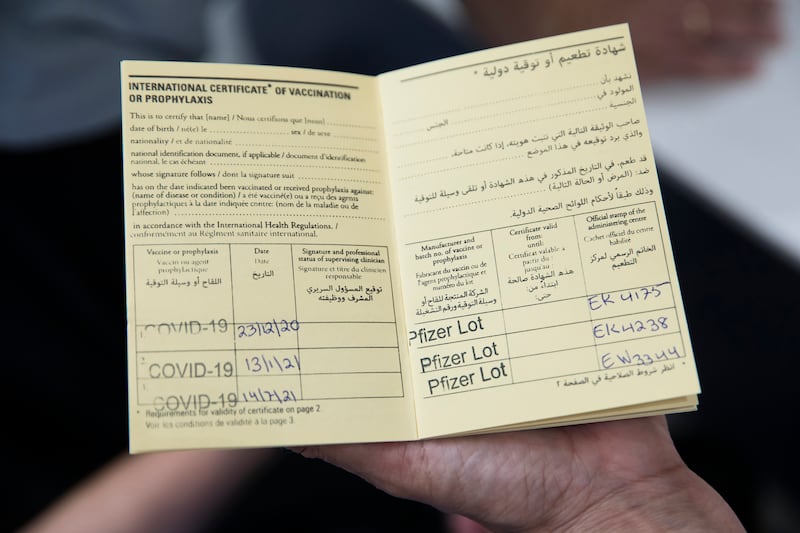 INTERNATIONAL CERTIFICATE* OF VACCINATION
OR PROPHYLAXIS
This is to certify that [name] / Nous certifions que [nom]
date of birth / né(e) le
sex / de sexe
nationality / et de nationalité
national identification document, if applicable / document d'identification
national, le cas échéant
whose signature follows / dont la signature suit
has on the date indicated been vaccinated or received prophylaxis against:
(name of disease or condition) / a été vacciné(e) ou a reçu des agents
prophylactiques à la date indiquée contre: (nom de la maladie ou de
l'affection)
in accordance with the International Health Regulations. /
conformément au Règlement sanitaire international.
Vaccine or prophylaxis
Vaccin ou agent
prophylactique
اللقاح أو وسيلة التوقية
Date
Date
التاريخ
Signature and professional
status of supervising clinician
Signature et titre du clinicien
responsable
توقيع المسؤول السريري
المشرف ووظيفته
1.
COVID-19
23/12/20
2.
COVID-19
13/1/21
3.
COVID-19
14/7/21
* Requirements for validity of certificate on page 2.
Voir les conditions de validité à la page 3.
شهادة تطعيم أو توقية دولية *
نشهد بأن
المولود في
الجنس
الجنسية
صاحب الوثيقة التالية التي تثبت هويته، إذا كانت متاحة،
والذي يرد توقيعه في هذا الموضع
قد طعم، في التاريخ المذكور في هذه الشهادة أو تلقى وسيلة للتوقية
ضد: (المرض أو الحالة التالية)
وذلك طبقاً لأحكام اللوائح الصحية الدولية.
Manufacturer and
batch no. of vaccine or
prophylaxis
Fabricant du vaccin ou de
l'agent prophylactique et
numéro du lot
الشركة المنتجة للقاح أو
وسيلة التوقية ورقم التشغيلة
Certificate valid
from:
until:
Certificat valable à
partir du :
jusqu'au :
هذه الشهادة صالحة
ابتداء من:
حتى:
Official stamp of the
administering centre
Cachet officiel du centre
habilité
الخاتم الرسمي لمركز
التطعيم
Pfizer Lot
EK 4175
Pfizer Lot
EK4238
Pfizer Lot
EW3344
* انظر شروط الصلاحية في الصفحة ٢